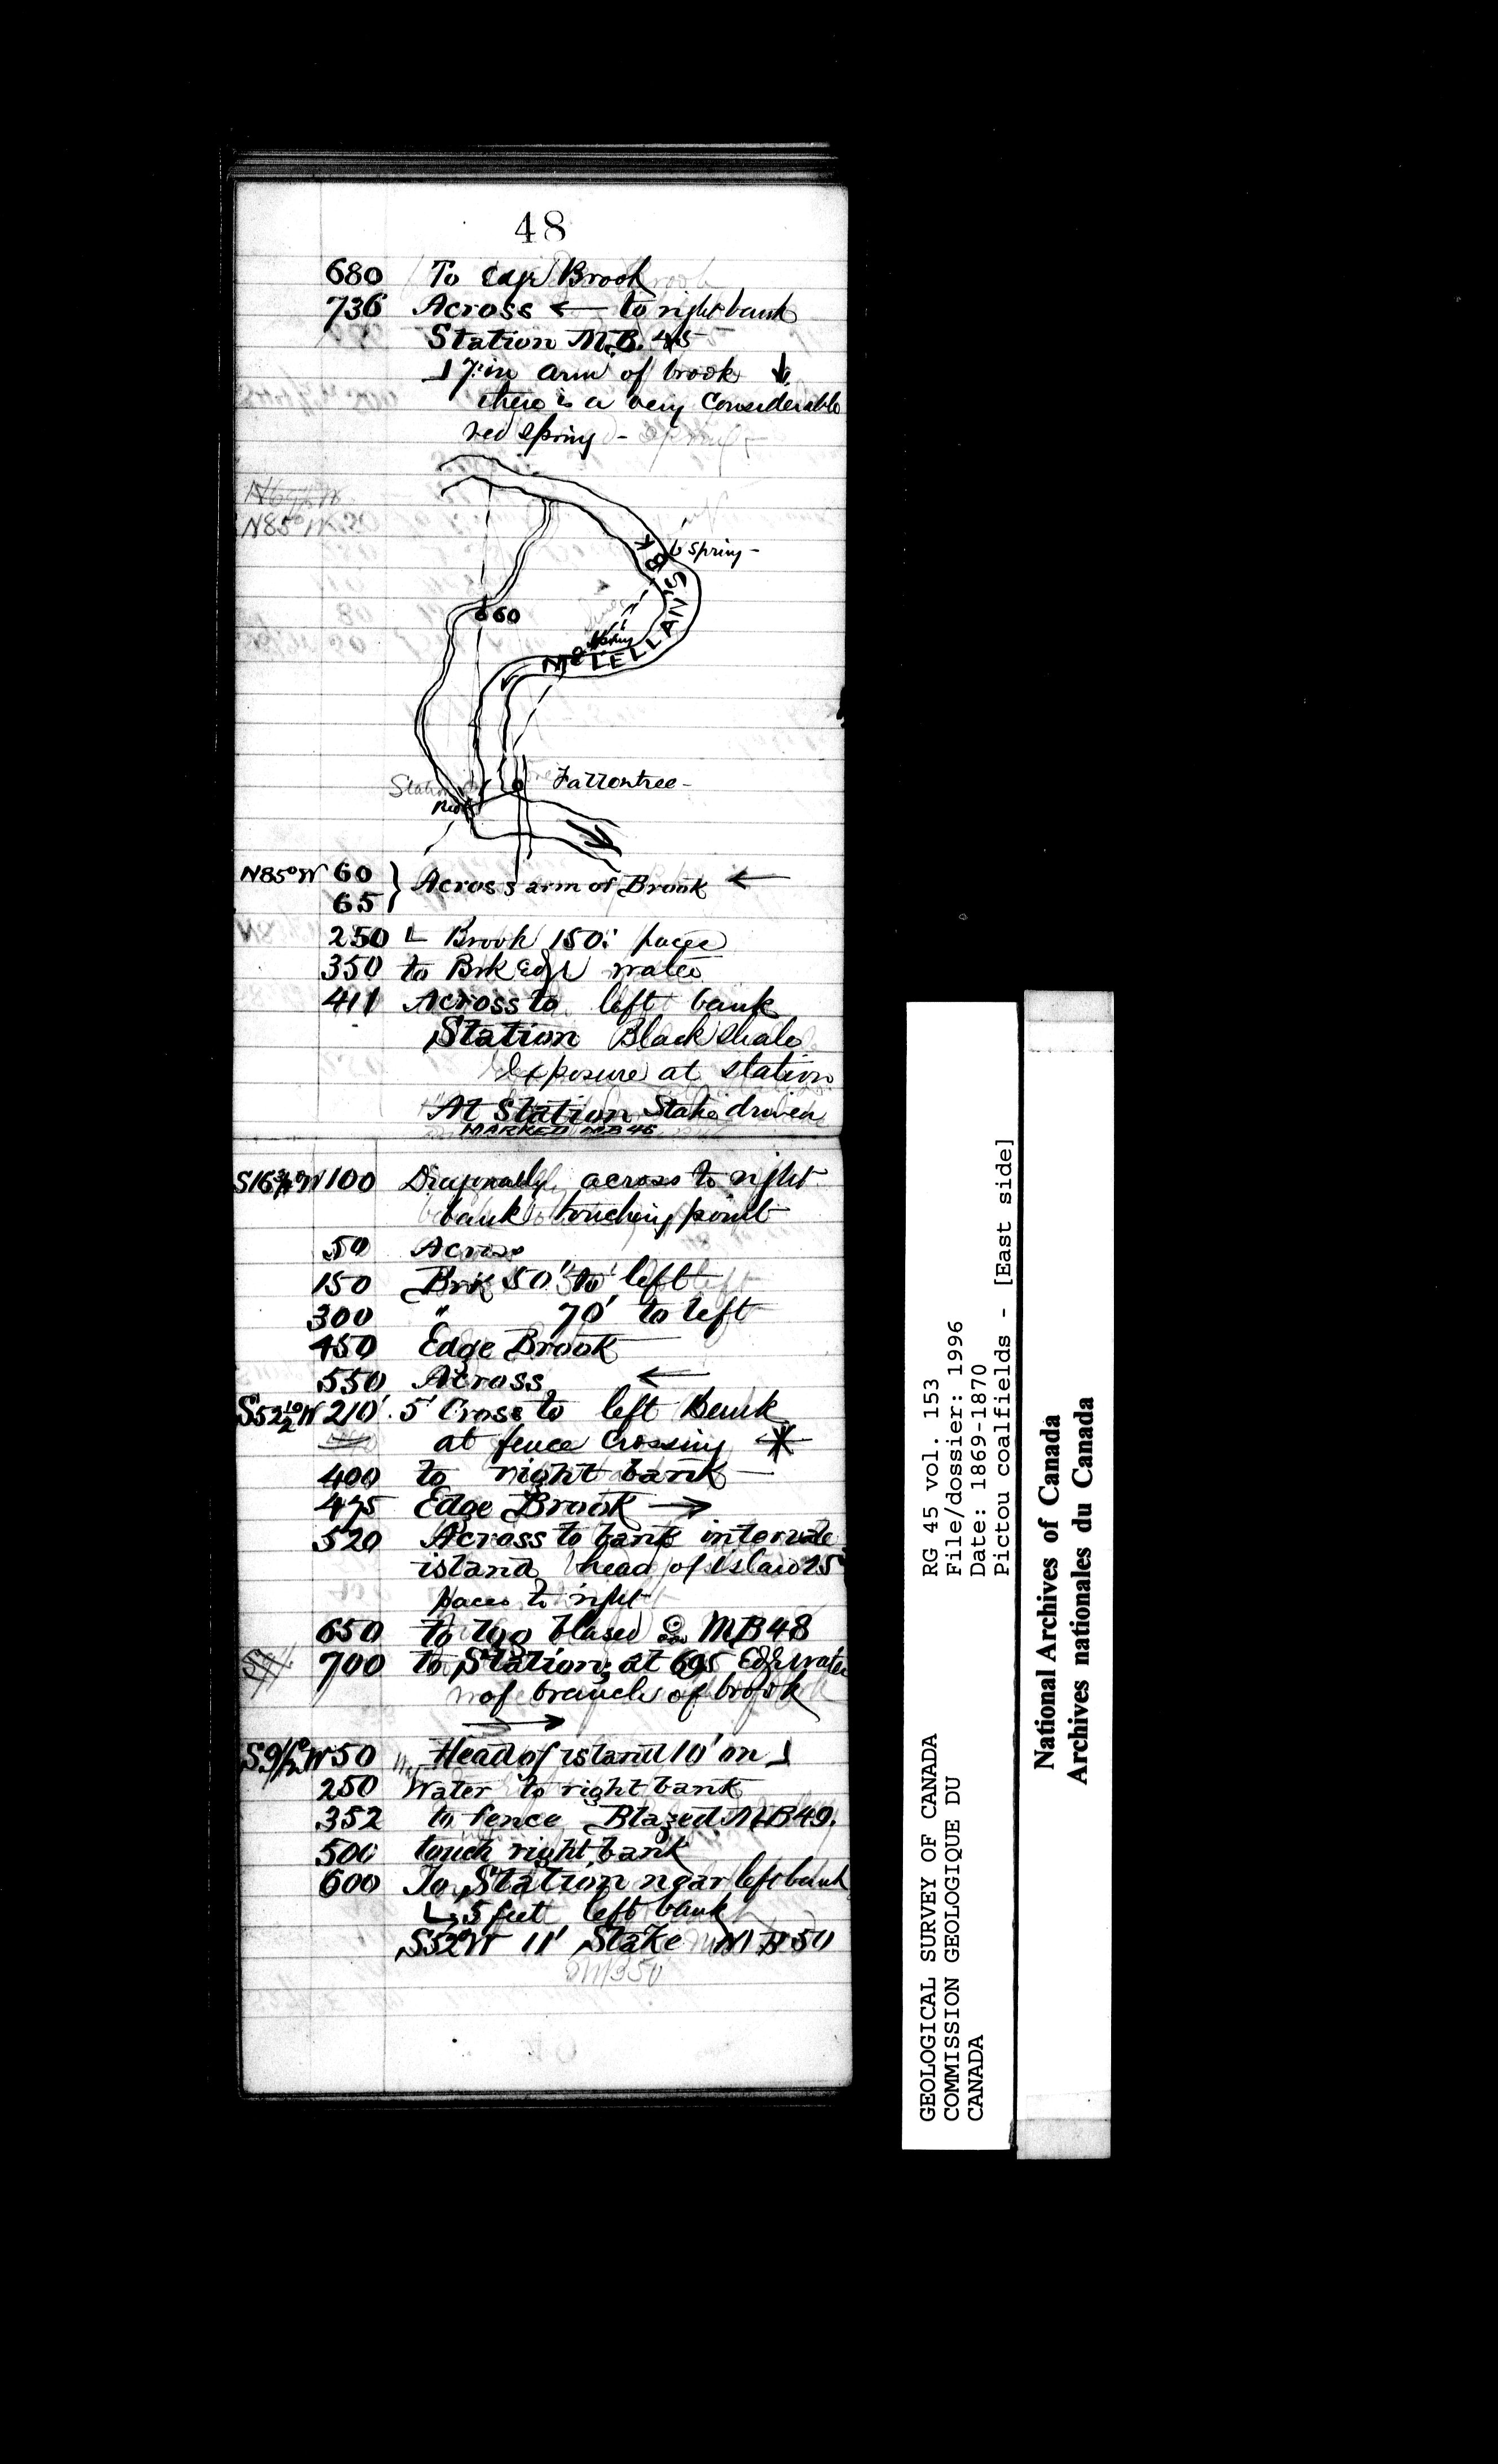 48
680 To Edge Brook
736 Across ← to right bank
Station M.B. 45
in arm of brook ↓
there is a very Considerable
red spring -
N85°W
spring -
McLELLAN'S BK
660
spring
Station
N85°W 60
65 } Across arm of Brook ←
250 Brook 150 paces
350 to Brk Edge water
411 Across to left bank
Station Black shale
Exposure at station
At Station Stake driven
MARKED MB 46
S16¾°W 100 Diagonally across to right
bank touching point
50 Across
150 Brk 50' to left
300 " 70' to left
450 Edge Brook
550 Across ←
S52½°W 210' 5' Cross to left Bank
at fence Crossing
400 to right bank
475 Edge Brook →
520 Across to bank intervale
island head of island 25
paces to right
650 to blased MB48
700 to Station; at 695 Edge water
of branch of brook
→
50 Head of island 10' on
250 Water to right bank
352 to fence Blazed MB49.
500 touch right bank
600 To Station near left bank
5 feet left bank
S52°W 11' Stake MB50
MB50
GEOLOGICAL SURVEY OF CANADA
COMMISSION GEOLOGIQUE DU
CANADA
RG 45 vol. 153
File/dossier: 1996
Date: 1869-1870
Pictou coalfields - [East side]
National Archives of Canada
Archives nationales du Canada